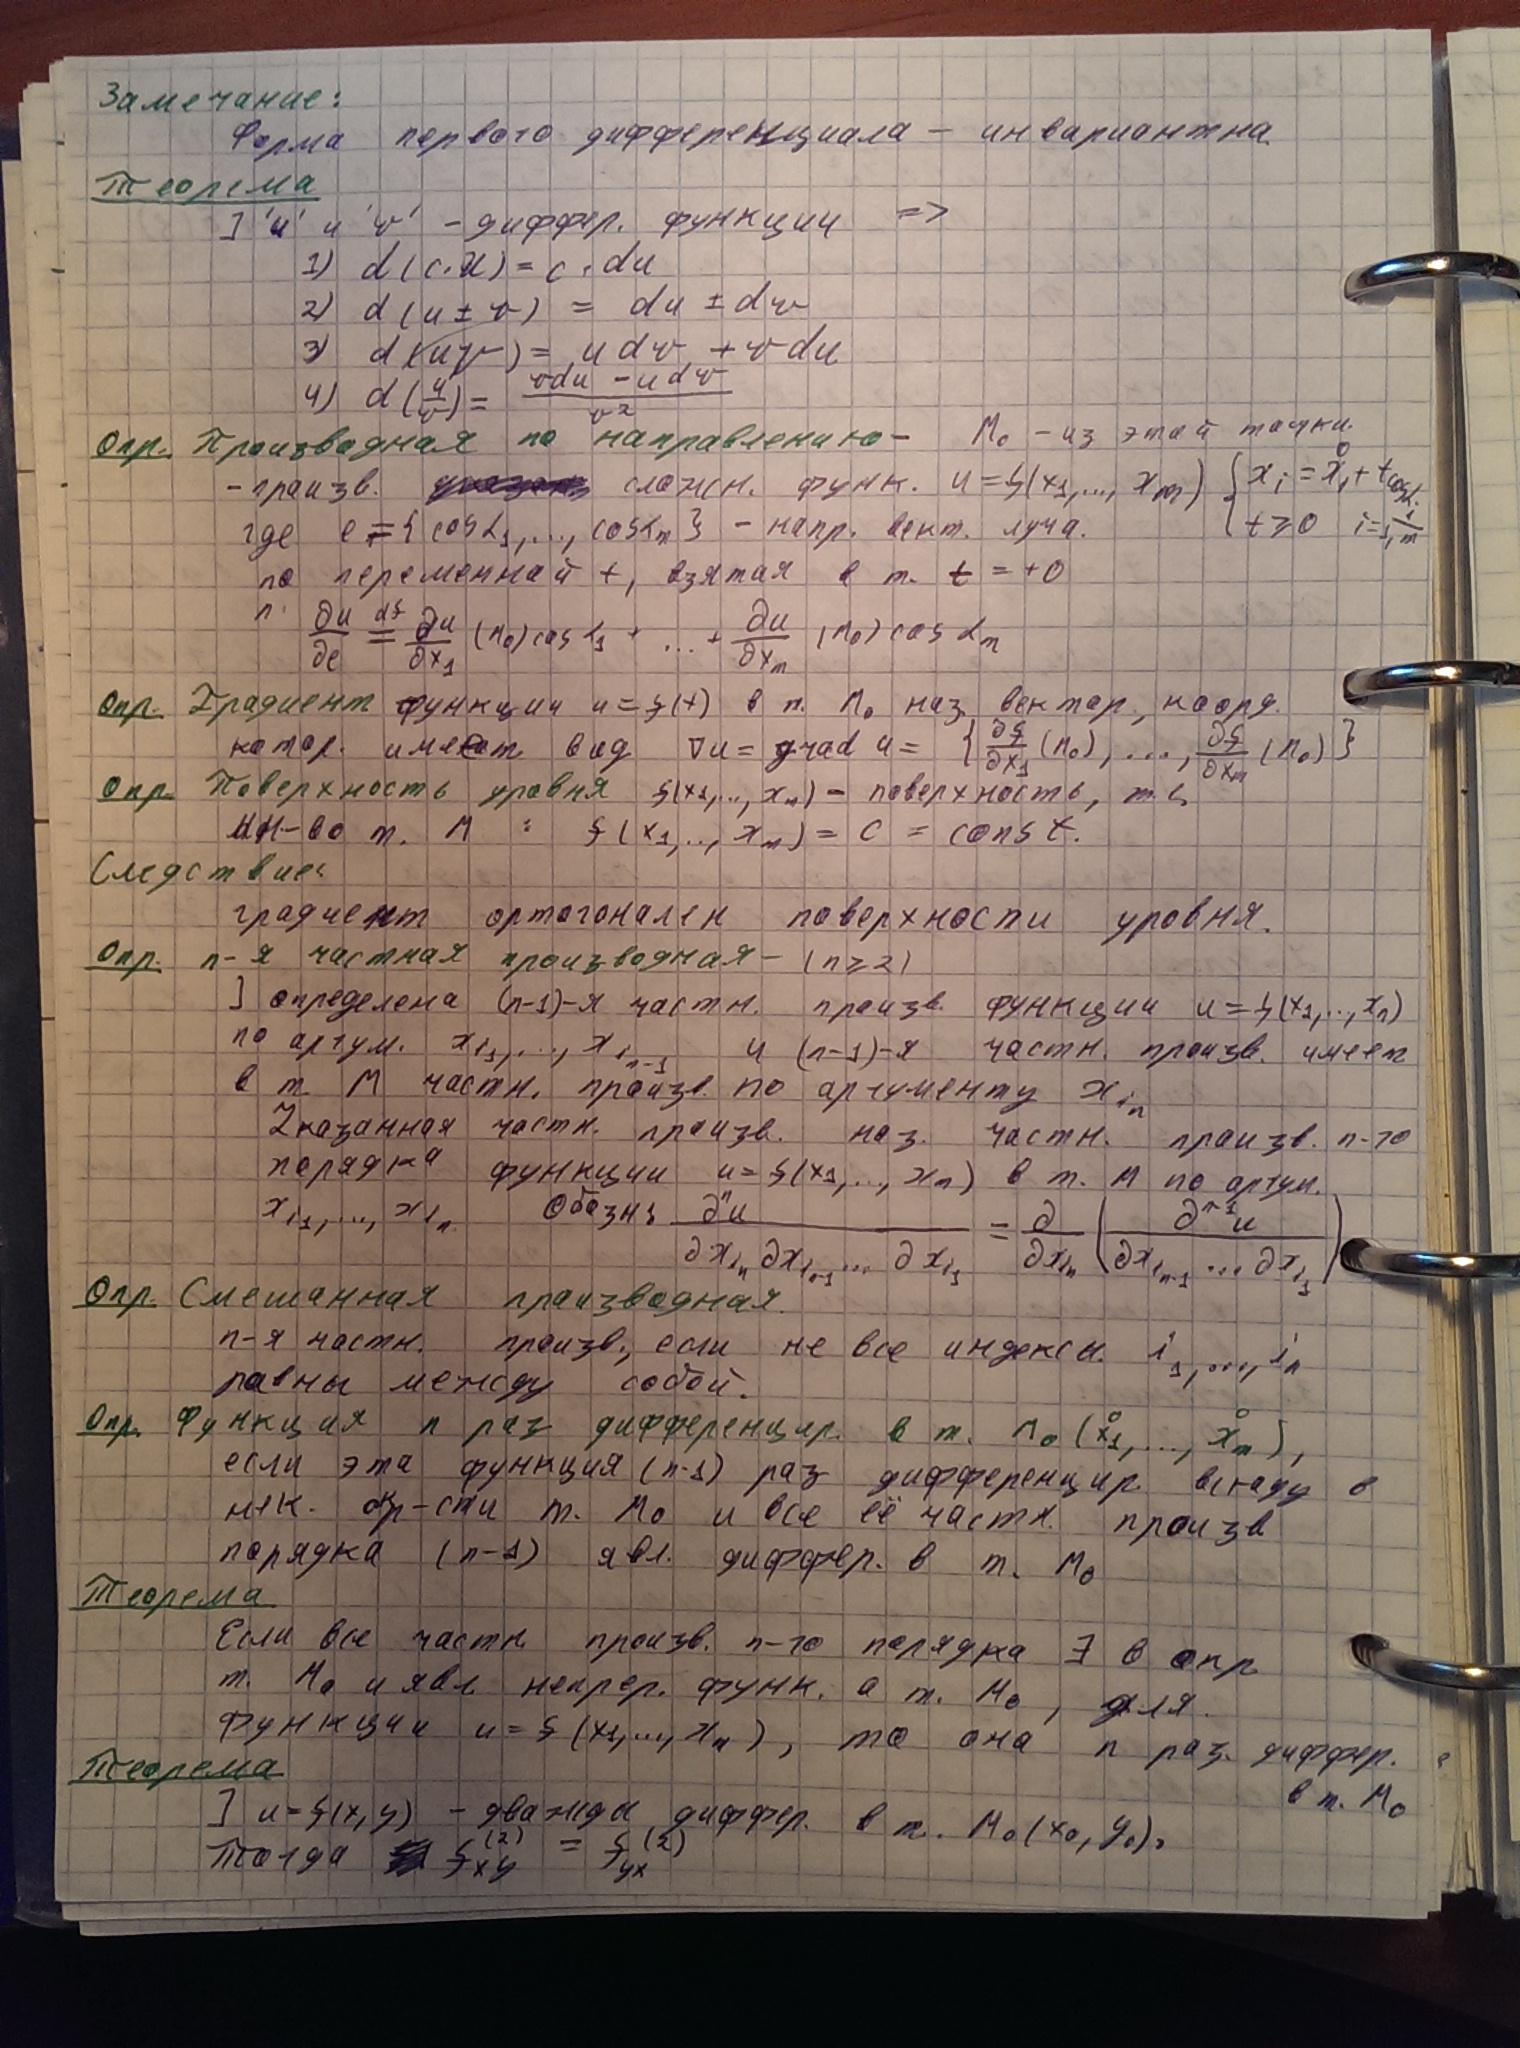 Замечание:
Форма первого дифференциала – инвариантна.
Теорема
] 'u' и 'v' – диффер. функции =>
1) d(c·u) = c·du
2) d(u ± v) = du ± dv
3) d(uv) = u dv + v du
4) d(u/v) = (vdu - udv)/v²
Опр. Производная по направлению – M₀ – из этой точки.
– произв. сложн. функ. u = f(x₁,..., xₘ) { xᵢ = x̊ᵢ + t cos αᵢ
где e = {cos α₁,..., cos αₘ} – напр. вект. луча. t ≥ 0 i = 1,m
по переменной t, взятая в т. t = +0
∂u/∂e df= ∂u/∂x₁ (M₀) cos α₁ + ... + ∂u/∂xₘ (M₀) cos αₘ
Опр. Градиент функции u = f(x) в т. M₀ наз. вектор, коорд.
котор. имеет вид ∇u = grad u = {∂f/∂x₁ (M₀), ..., ∂f/∂xₘ (M₀)}
Опр. Поверхность уровня f(x₁,..., xₙ) – поверхность, т.ч.
мн-во т. M : f(x₁,.., xₙ) = C = const.
Следствие:
градиент ортогонален поверхности уровня.
Опр. n-я частная производная – (n ≥ 2)
] определена (n-1)-я частн. произв. функции u = f(x₁,..., xₙ)
по аргум. xᵢ₁,..., xᵢₙ₋₁ и (n-1)-я частн. произв. имеет
в т. M частн. произв. по аргументу xᵢₙ
Указанная частн. произв. наз. частн. произв. n-го
порядка функции u = f(x₁,..., xₙ) в т. M по аргум.
xᵢ₁,..., xᵢₙ Обозн: ∂ⁿu/(∂xᵢₙ ∂xᵢₙ₋₁ ... ∂xᵢ₁) = ∂/∂xᵢₙ (∂ⁿ⁻¹u/(∂xᵢₙ₋₁ ... ∂xᵢ₁))
Опр. Смешанная производная.
n-я частн. произв., если не все индексы i₁,..., iₙ
равны между собой.
Опр. Функция n раз дифференцир. в т. M₀(x̊₁,..., x̊ₘ),
если эта функция (n-1) раз дифференцир. всюду в
нек. окр-сти т. M₀ и все её частн. произв
порядка (n-1) явл. диффер. в т. M₀
Теорема
Если все частн. произв. n-го порядка ∃ в окр
т. M₀ и явл непрер. функ. в т. M₀, для
функции u = f(x₁,..., xₙ), то она n раз. диффер.
в т. M₀
Теорема
] u = f(x, y) – дважды диффер. в т. M₀(x₀, y₀),
Тогда f_xy⁽²⁾ = f_yx⁽²⁾